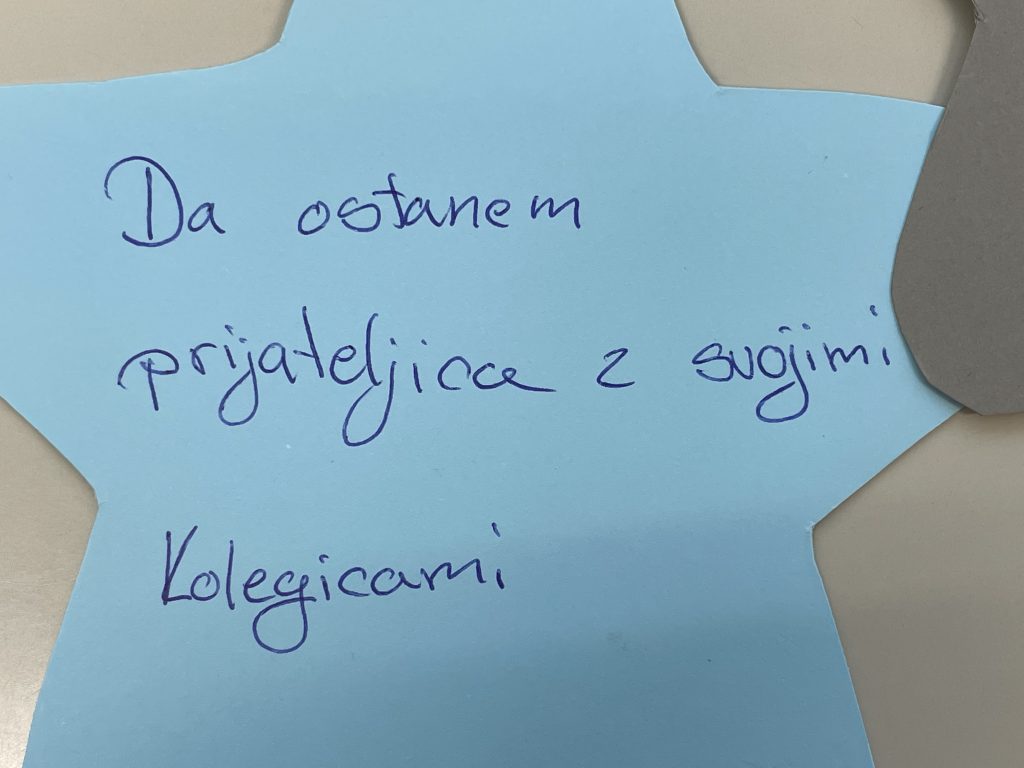 Da ostanem
prijateljica z svojimi
kolegicami